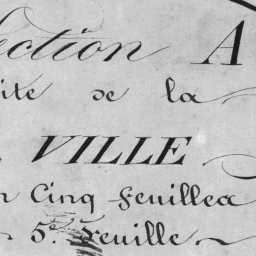 ection A
ite de la
VILLE
n Cinq feuilles
5e. Feuille